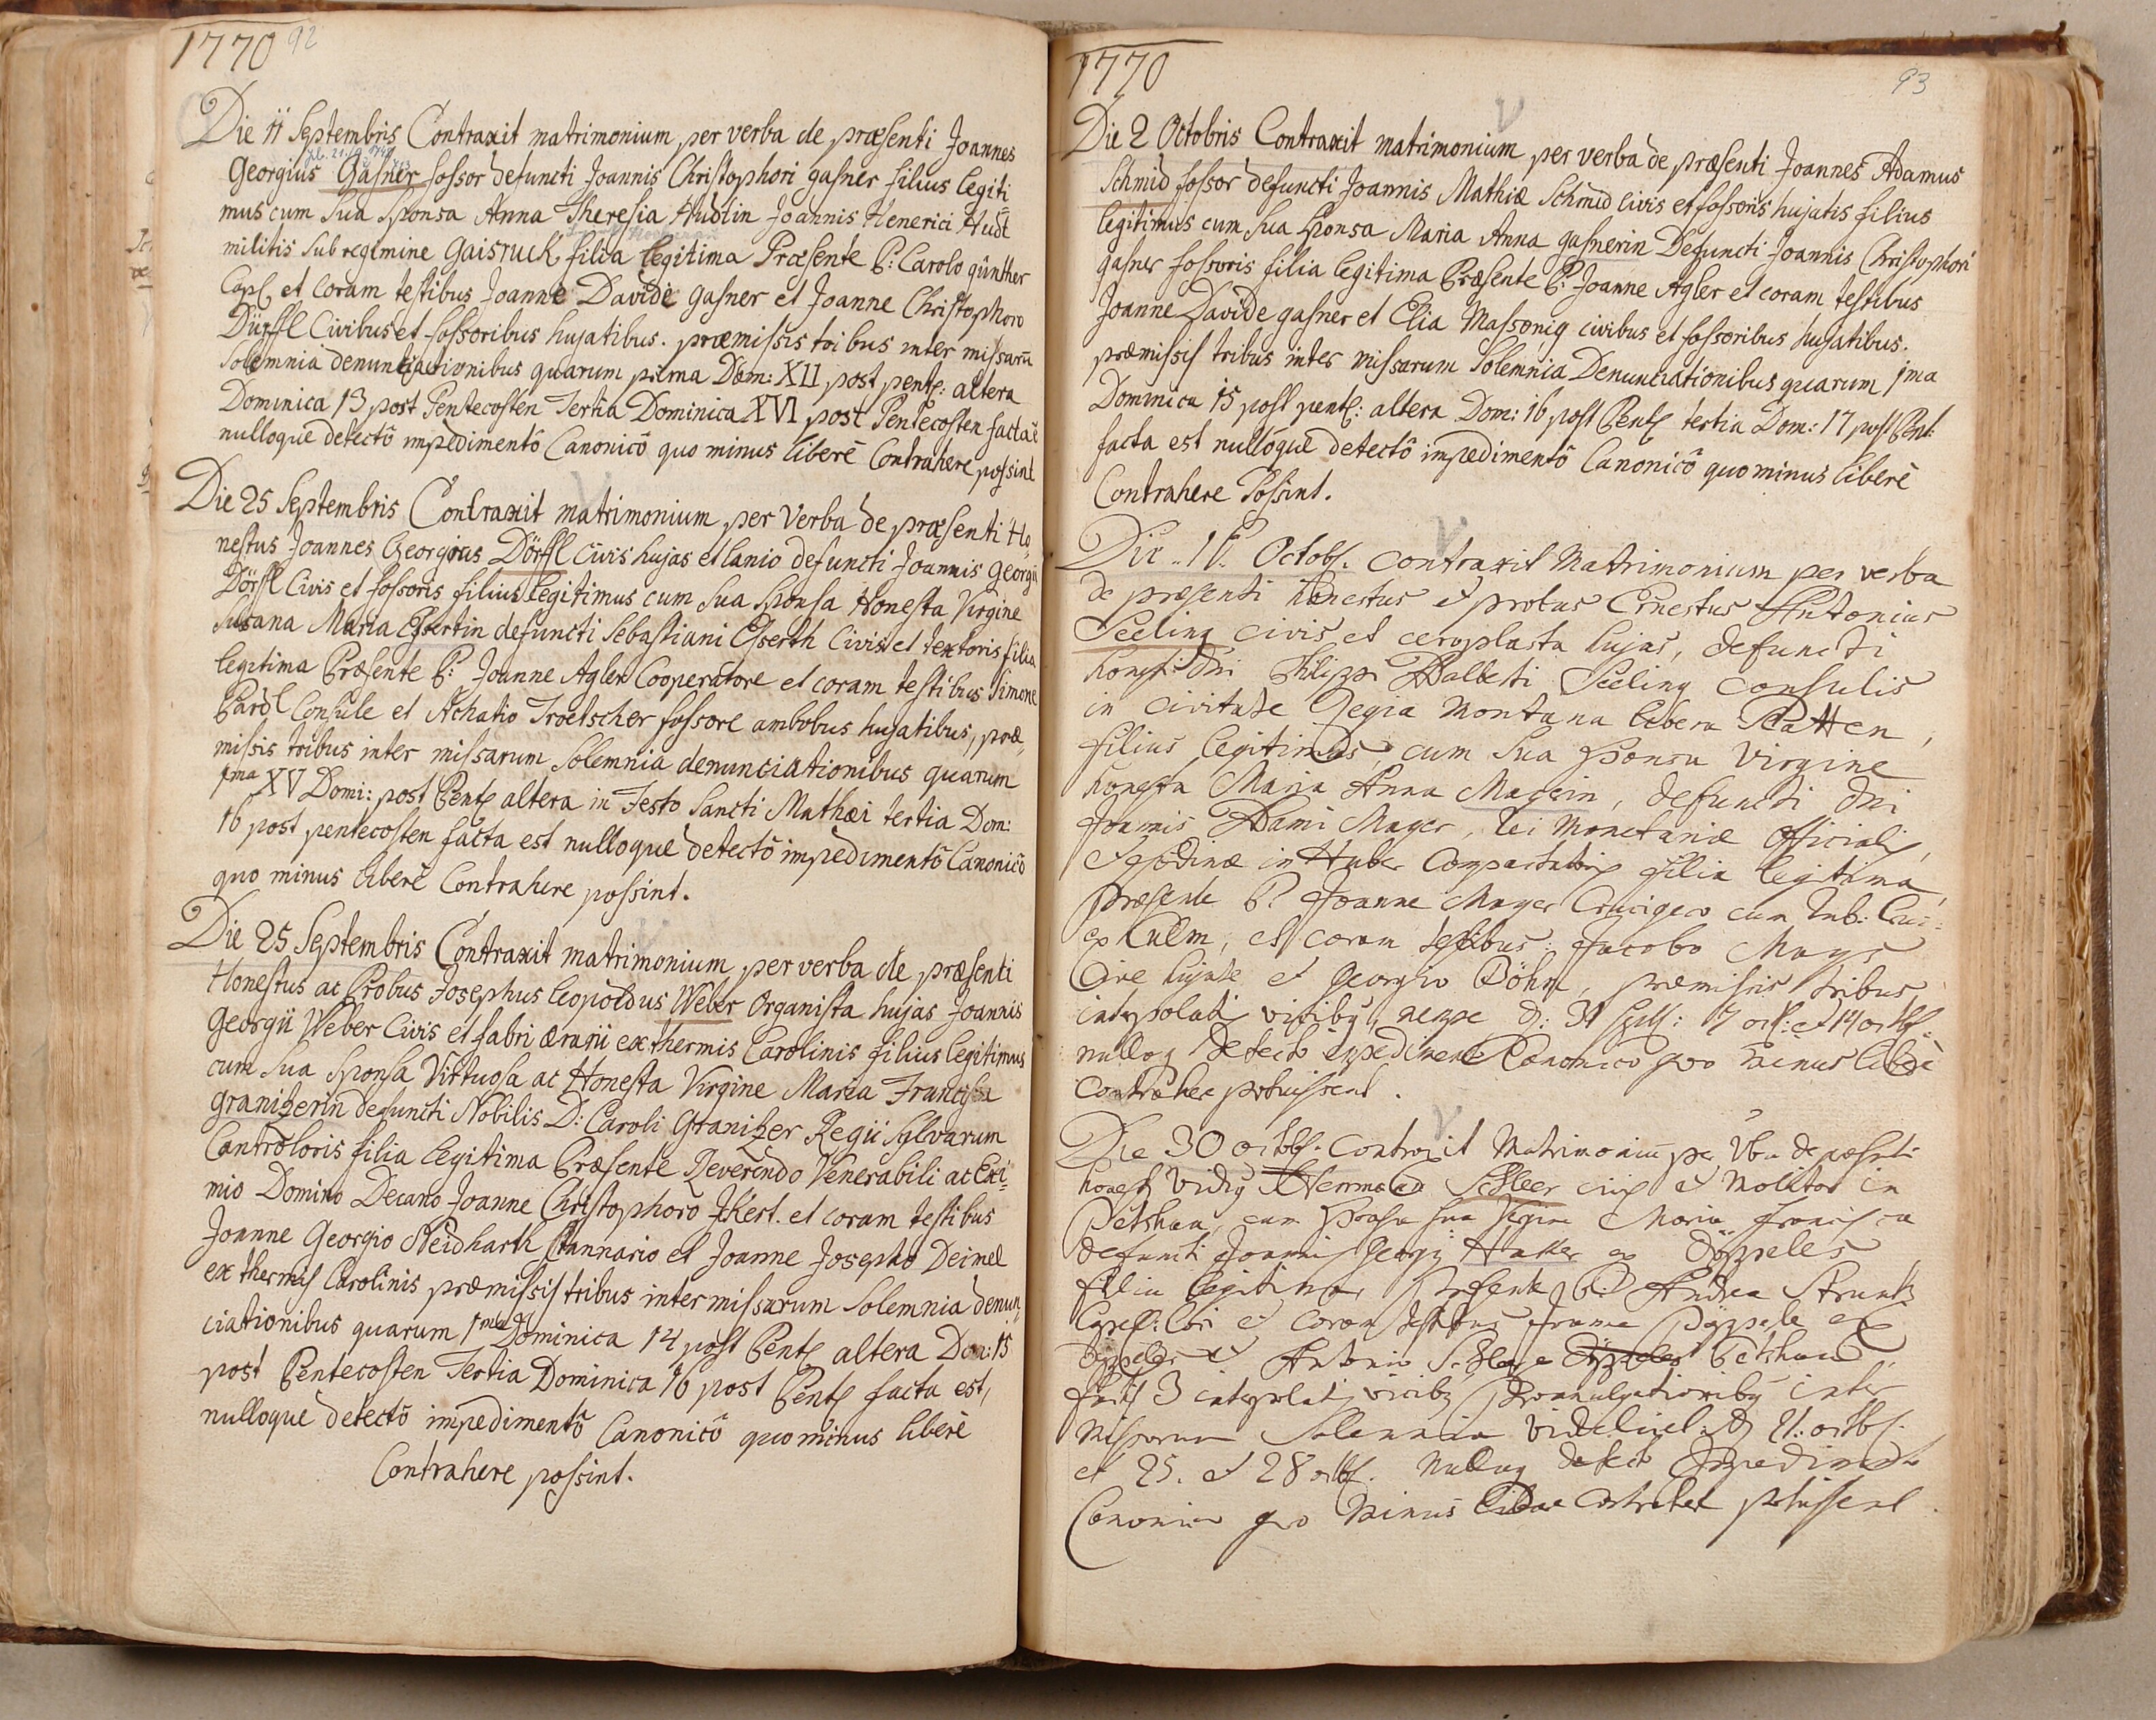 1770 92
Die 11 Septembris Contraxit matrimonium per verba de præsenti Joannes
Georgius Gasner fossor defuncti Joannis Christophori gasner filius legiti
mus cum Sua Sponsa Anna Theresia Hudlin Joannis Henerici Hudl
militis sub regimine Gaisruck filia legitima Præsente P: Carolo günther
Capl et coram testibus Joanne Davide gasner et Joanne Christophoro
Dürffl Civibus et fossoribus hujatibus. præmissis tribus inter missarū
Solemnia denunciationibus quarum prima Dom: XII post pent: altera
Dominica 13 post Pentecosten Tertia Dominica XVI post Pentecosten facta ē
nulloque detectô impedimentô Canonicô quo minus liberè Contrahere possint
Die 25 Septembris Contraxit matrimonium per Verba de præsenti Ho,
nestus Joannes Georgius Dörffl Civis hujas et lanio defuncti Joannis Georgii
Dörffl Civis et fossoris filius legitimus cum Sua Sponsa Honesta Virgine
Susana Maria Esertin defuncti Sebastiani Eserth Civis et textoris filia
legitima Præsente P: Joanne Agler Cooperatore et coram testibus Simone
Pardl Consule et Achatio Troetscher fossore ambobus hujatibus, præ,
missis tribus inter missarum Solemnia denunciationibus quarum
1ma XV Domi: post Pent altera in Festo Sancti Mathæi tertia Dom:
16 post pentecosten facta est nulloque detectô impedimentô Canonicô
quo minus liberè Contrahere possint.
Die 25 Septembris Contraxit matrimonium per verba de præsenti
Honestus ac Probus Josephus leopoldus Weber Organista hujas Joannis
Georgii Weber Civis et fabri ærarii ex thermis Carolinis filius legitimus
cum Sua Sponsa Virtuosa ac Honesta Virgine Maria Francisca
Granizerin defuncti Nobilis D: Caroli Granizer Regii Sylvarum
Cantroloris filia legitima Præsente Reverendo Venerabili ac Exi=
mio Domino Decano Joanne Christophoro Jkert. et coram testibus
Joanne Georgio Neidharth Stannario et Joanne Josepho Deimel
ex thermis Carolinis præmissis tribus inter missarum Solemnia denun,
ciationibus quarum 1ma Dominica 14 post Pent altera Dom: 15
post Pentecosten Tertia Dominica 16 post Pent facta est,
nulloque detectô impedimentô Canonicô quo minus liberè
Contrahere possint.
1770 93
Die 2 Octobris Contraxit matrimonium per verba de præsenti Joannes Adamus
Schmid fossor defuncti Joannis Mathiæ Schmid civis et fossoris hujatis filius
legitimus cum Sua Sponsa Maria Anna gasnerin Defuncti Joannis Christophori
gasner fossoris filia legitima Præsente P: Joanne Agler et coram testibus
Joanne Davide gasner et Elia Massonig civibus et fossoribus hujatibus.
præmissis tribus inter missarum Solemnia Denunciationibus quarum 1ma
Dominica 15 post pent: altera Dom: 16 post Pent tertia Dom: 17 post Pent:
facta est nulloque detectô impedimentô Canonicô quo minus liberè
Contrahere Possint.
Die Octob. contraxit Matrimonium per verba
de præsenti honestus et probus Ernestus Antonius
Seeling civis et ceroplasta hujas, defuncti
Dni Philippi Adalberti Seeling consulis
in civitate Regia montana libera Platten,
filius legitimus, cum Sua Sponsa virgine
honesta Maria Anna Magerin, defuncti dni
Joannis Adami Mager, rei monetariæ officialis,
et fodinæ in Huber filia legitima
præsente P. Joanne Mager Crucigero cum rub: Cru:
ex Culm, et coram testibus Jacobo Mays
Cive hujate et Georgio Böhm, præmissis tribus
intrpolatis vicibus, nempe d: 7 oct: et 14 octob.
nulloq detecto impedimento Canonico quo minus liberè
contrahere potuissent.
Die 30 octob. contraxit Matrimoniū per Vba de præsnti
honest Vidus Schleer civis et Molitor in
Petschau, cum Sponsa sua Virgine Maria Francisca
defuncti Joannis Georgii Haller ex Döppeles
filia legitima Præsente P. Andrea Strunk
Capell: et coram testibus Döppele ex
Döppeles et Antonio Schlere Döppeles Petschau
factis 3 intrpolatis vicibus Promulgationibus inter
Missarum Solemnia videlicet d 21. octob.
et 25. et 28 octob. Nulloq detecto Impedimento
Canonico quo minus Liberè contrahere potuissent.